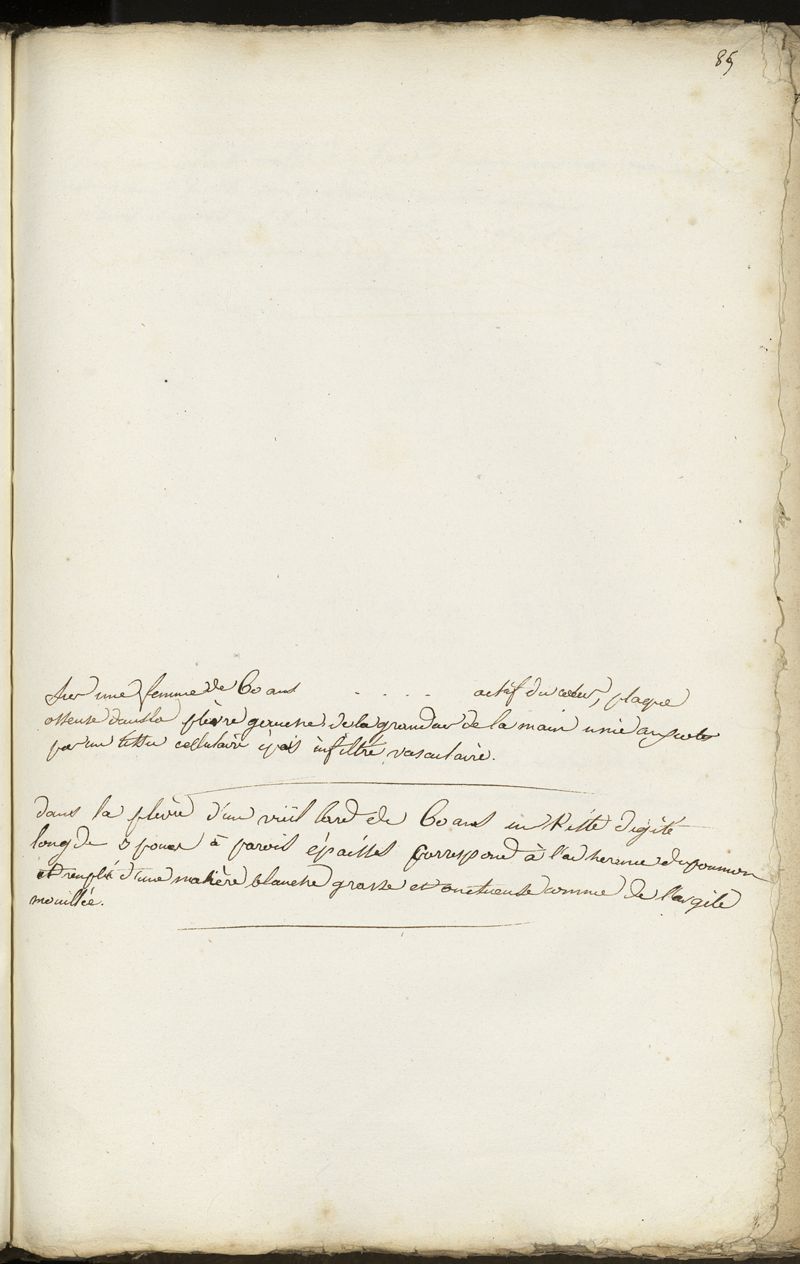 85
Sur une femme de 60 ans . . . . actif du cœur, plaque
osseuse dans la plèvre gauche de la grandeur de la main unie aux cotes
par un tissu cellulaire épais infiltré, vasculaire.
dans la plevre d'un vieillard de 60 ans un kiste digité
long de 3 pouces à parois épaisses correspond à l'adherence du poumon
et rempli d'une matière blanche grasse et onctueuse comme de l'argile
mouillée.